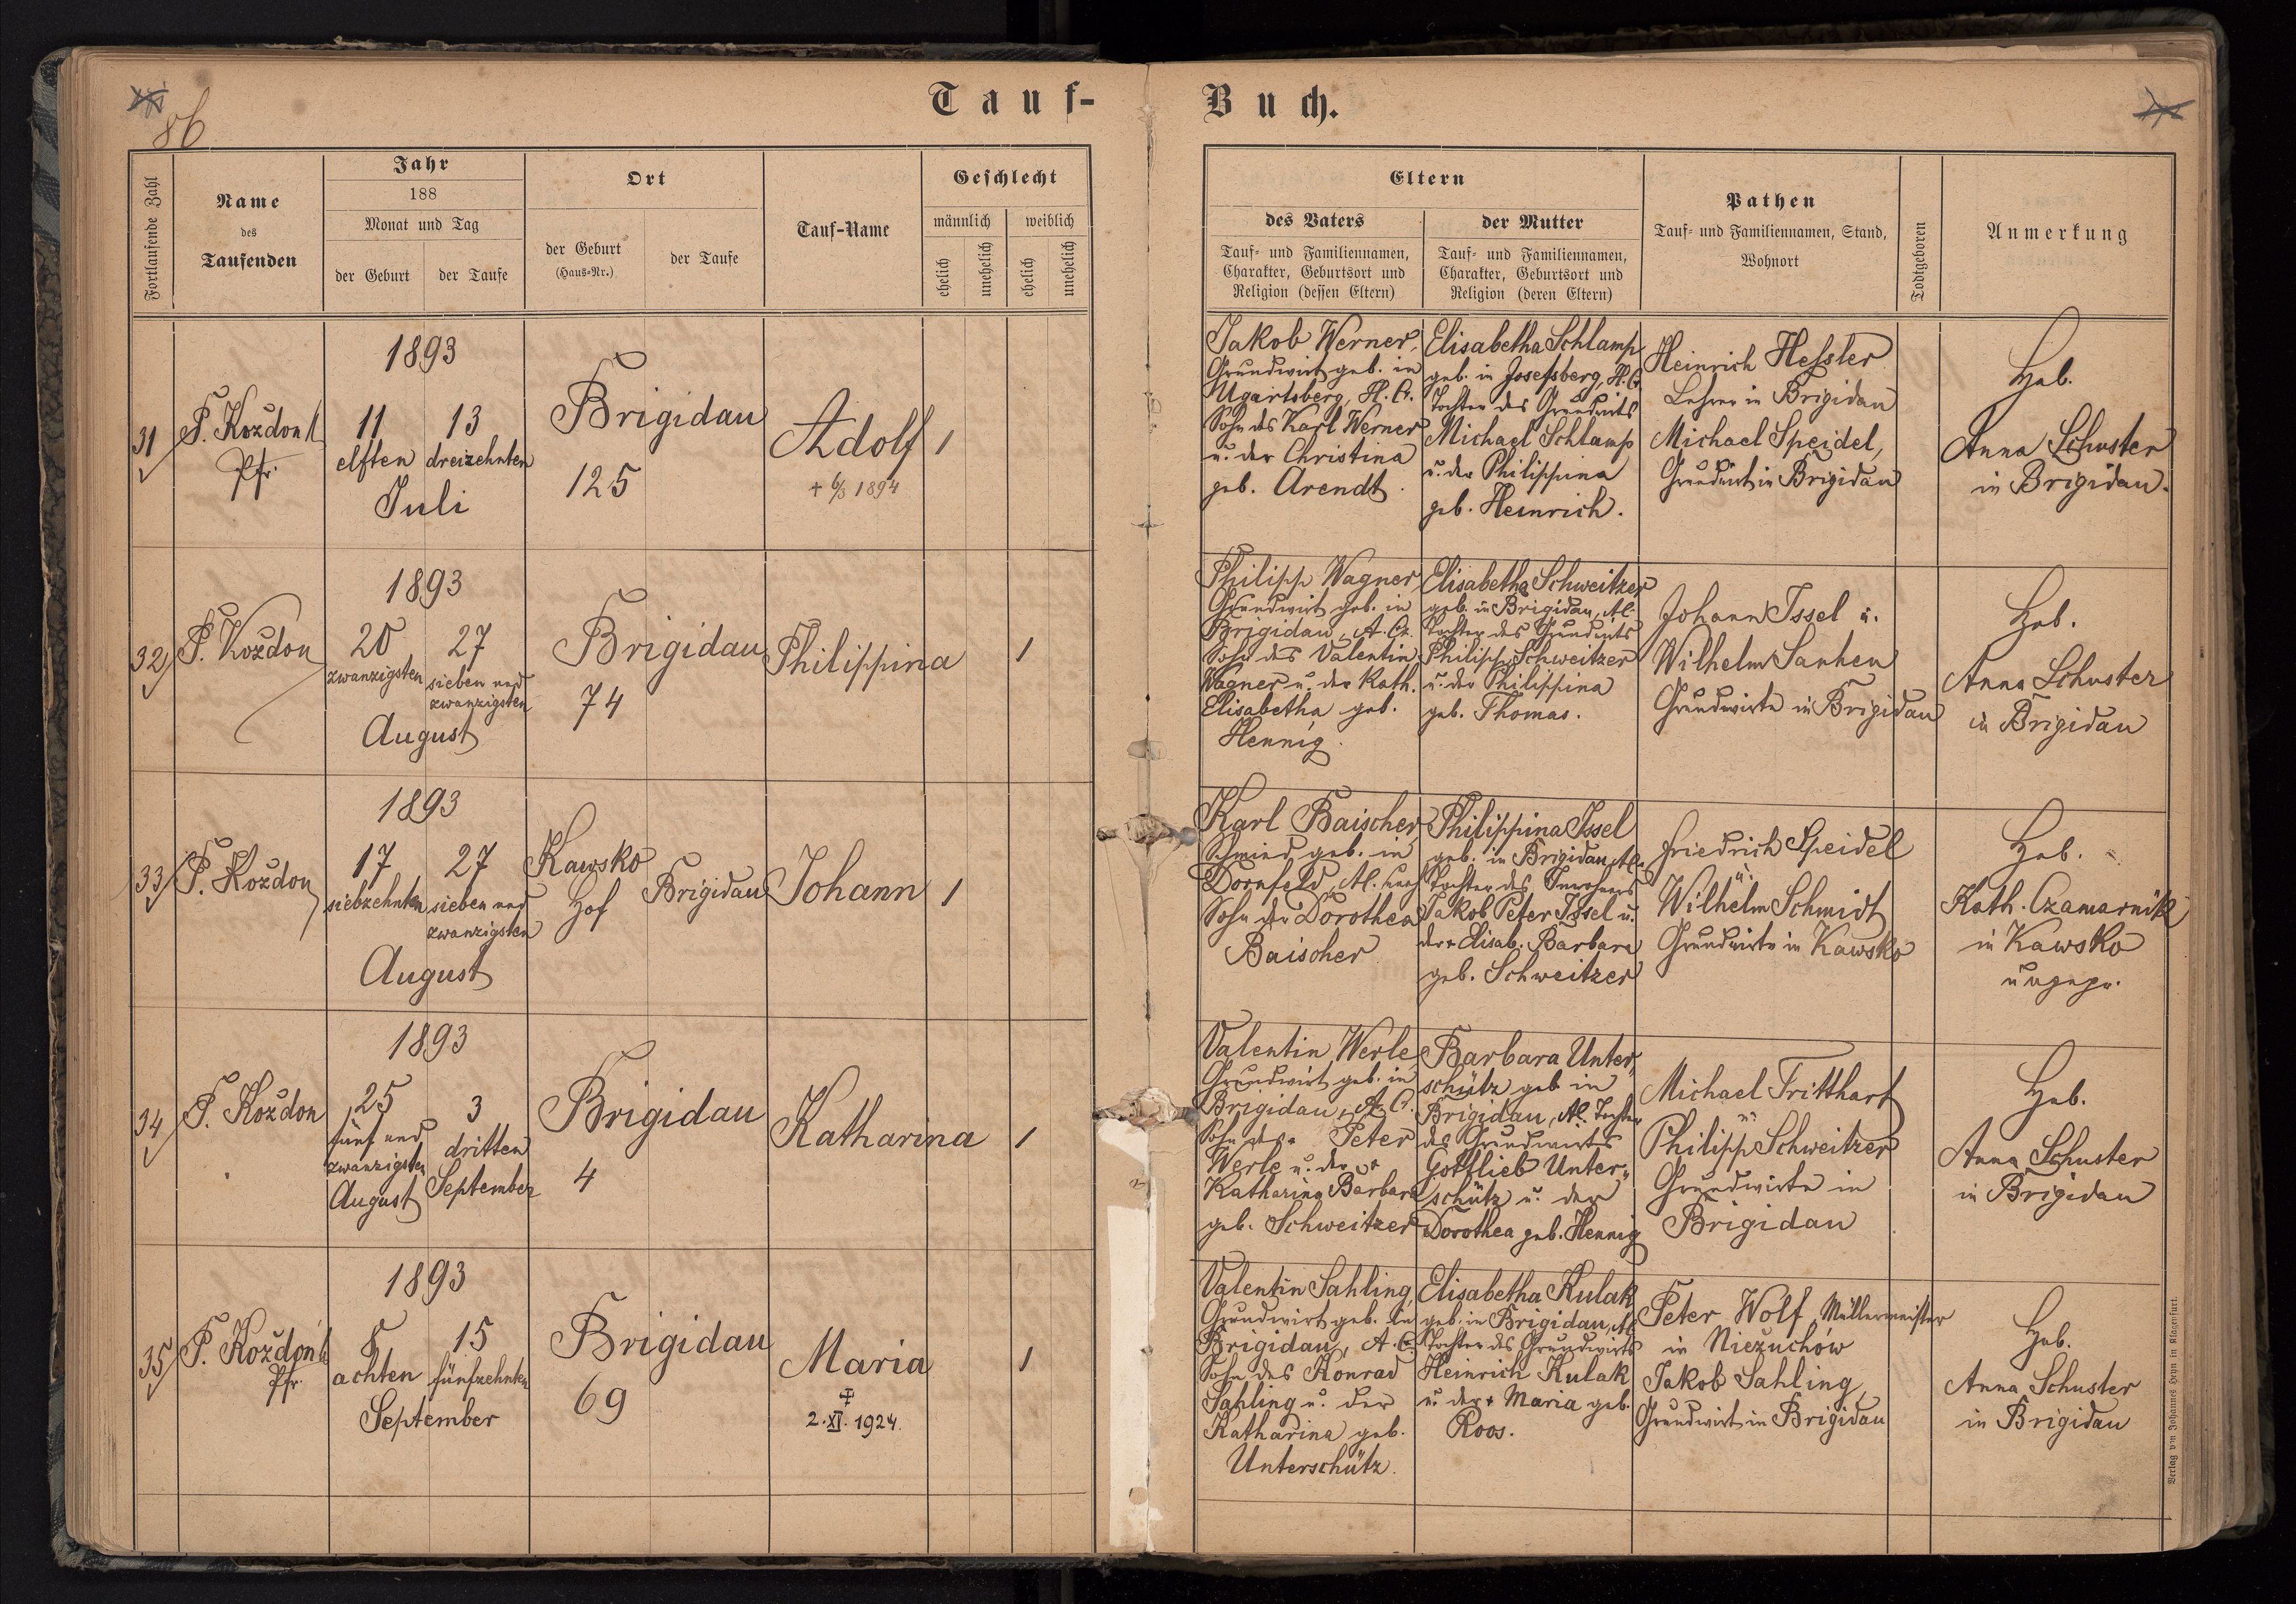 86
Tauf-
Buch.
Fortlaufende Zahl
Name
des
Taufenden
Jahr
188
Monat und Tag
der Geburt
der Taufe
Ort
der Geburt
(Haus-Nr.)
der Taufe
Tauf-Name
Geschlecht
männlich
weiblich
ehelich
unehelich
ehelich
unehelich
Eltern
des Vaters
Tauf- und Familiennamen,
Charakter, Geburtsort und
Religion (dessen Eltern)
der Mutter
Tauf- und Familiennamen,
Charakter, Geburtsort und
Religion (deren Eltern)
Pathen
Tauf- und Familiennamen, Stand,
Wohnort
Todtgeboren
Anmerkung
31
P. Kozdon
Pfr.
1893
11
elften
13
dreizehnten
Juli
Brigidau
125
Adolf
+ 6/3 1894
1
Jakob Werner,
Grundwirt geb. in
Ugartsberg, H. C.
Sohn des Karl Werner
u. der Christina
geb. Arendt.
Elisabetha Schlamp
geb. in Josefsberg, H. C.
Tochter des Grundwirts
Michael Schlamp
u. der Philippina
geb. Heinrich.
Heinrich Hessler
Lehrer in Brigidau
Michael Speidel,
Grundwirt in Brigidau
Heb.
Anna Schuster
in Brigidau.
32
P. Kozdon
1893
20
zwanzigsten
27
sieben und
zwanzigsten
August
Brigidau
74
Philippina
1
Philipp Wagner
Grundwirt geb. in
Brigidau, A. C.
Sohn des Valentin
Wagner u. der Kath.
Elisabetha geb.
Hennig.
Elisabetha Schweitzer
geb. in Brigidau, Al.
Tochter des Grundwirts
Philipp Schweitzer
u. der Philippina
geb. Thomas.
Johann Issel u.
Wilhelm Manken
Grundwirte in Brigidau
Heb.
Anna Schuster
in Brigidau
33
P. Kozdon
1893
17
siebzehnten
27
sieben und
zwanzigsten
August
Kawsko
Hof
Brigidau
Johann
1
Karl Baischer
Schmied geb. in
Dornfeld, Al.
Sohn der Dorothea
Baischer
Philippina Issel
geb. in Brigidau, Al.
Tochter des Inwohners
Jakob Peter Issel u.
der + Elisab. Barbara
geb. Schweitzer
Friedrich Speidel
u.
Wilhelm Schmidt
Grundwirte in Kawsko
Heb.
Kath. Czamarnik
in Kawsko
ungepr.
34
P. Kozdon
1893
25
fünf und
zwanzigsten
August
3
dritten
September
Brigidau
4
Katharina
1
Valentin Werle,
Grundwirt geb. in
Brigidau, A. C.
Sohn des + Peter
Werle u. der +
Katharina Barbara
geb. Schweitzer
Barbara Unter-
schütz geb. in
Brigidau, Al. Tochter
des Grundwirts
Gottlieb Unter-
schütz u. der
Dorothea geb. Hennig
Michael Tritthart
u.
Philipp Schweitzer
Grundwirte in
Brigidau
Heb.
Anna Schuster
in Brigidau
35
P. Kozdon
Pfr.
1893
8
achten
15
fünfzehnten
September
Brigidau
69
Maria
‡
2. XI. 1924.
1
Valentin Sahling,
Grundwirt geb. in
Brigidau, A. C.
Sohn des Konrad
Sahling u. der
Katharina geb.
Unterschütz.
Elisabetha Kulak
geb. in Brigidau, Al.
Tochter des Grundwirts
Heinrich Kulak
u. der + Maria geb.
Roos.
Peter Wolf, Müllermeister
in Niezuchów
Jakob Sahling,
Grundwirt in Brigidau
Heb.
Anna Schuster
in Brigidau
Verlag von Johannes Heyn in Klagenfurt.